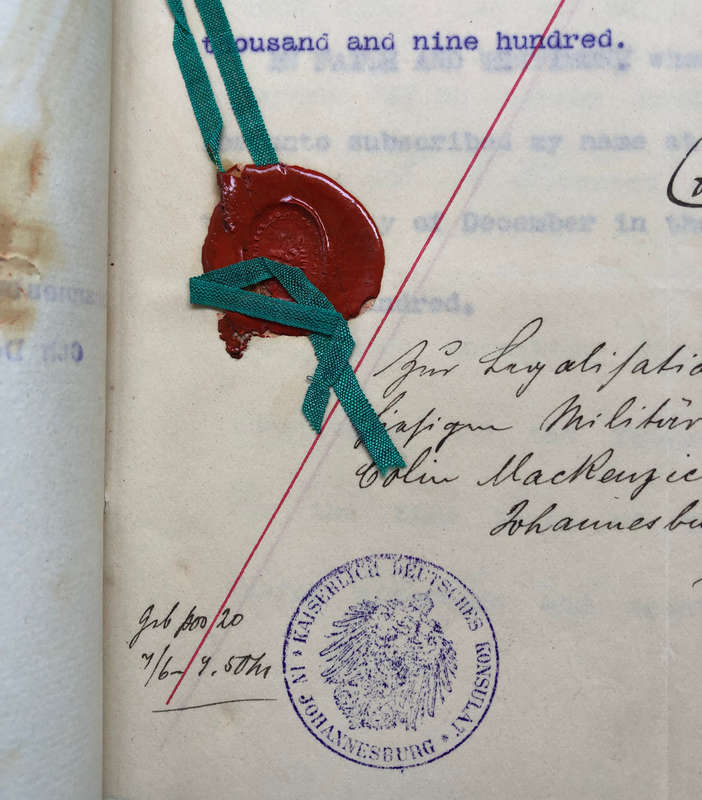 thousand and nine hundred.
IN FAITH AND TESTIMONY whe
unto subscribed my name at
y of December in the
ndred.
6th D
Zur Legalisatio
hiesigen Militär
Colin Mackenzie
Johannesbu
Geb 20
KAISERLICH DEUTSCHES KONSULAT
IN JOHANNESBURG